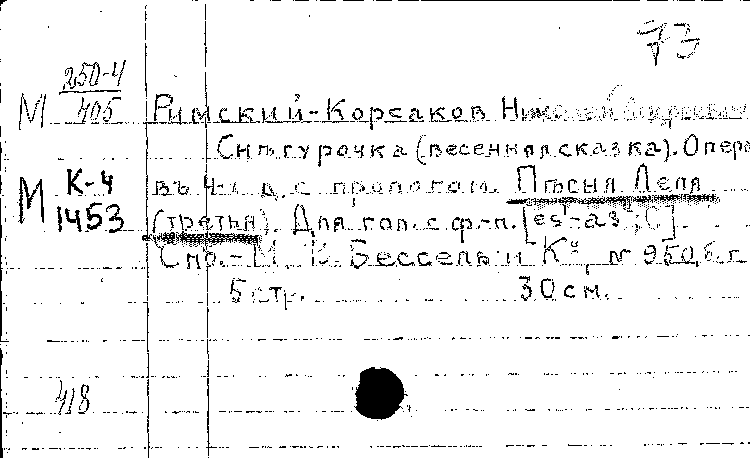 73
М 250-4/405 Римский-Корсаков Николай
Снѣгурочка (весенняя сказка). Опера
М К-4/1453 въ 4-х д. с прологом. Пѣсня Леля
(третья). Для гол. с ф-п. [es¹-as²; C].
Спб. - М., В. Бессель и К⁰, № 950, б. г.
5 стр. 30 см.
418